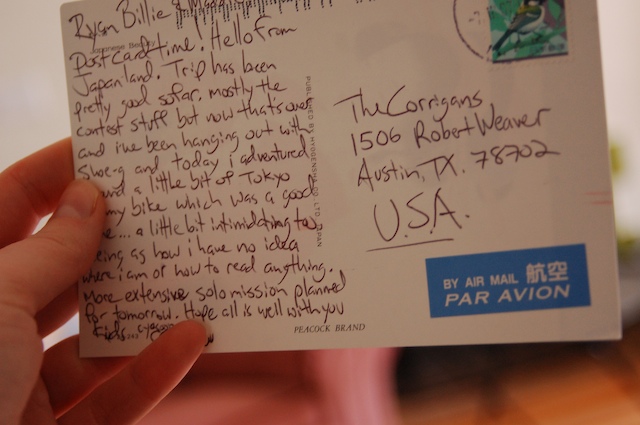 Ryan Billie &
Japanese Beauty
Postcard time. Hello from
Japanland. Trip has been
pretty good so far. mostly the
contest stuff but now that's over
and i've been hanging out with
Shoe-g and today i adventured
a little bit of Tokyo
my bike which was a good
... a little bit intimidating to
as how i have no idea
where i am or how to read anything.
More extensive solo mission planned
for tomorrow. Hope all is well with you
kids.
PUBLISHED BY HYOGENSHA CO., LTD. JAPAN
PEACOCK BRAND
The Corrigans
1506 Robert Weaver
Austin, TX. 78702
U.S.A.
BY AIR MAIL 航空
PAR AVION